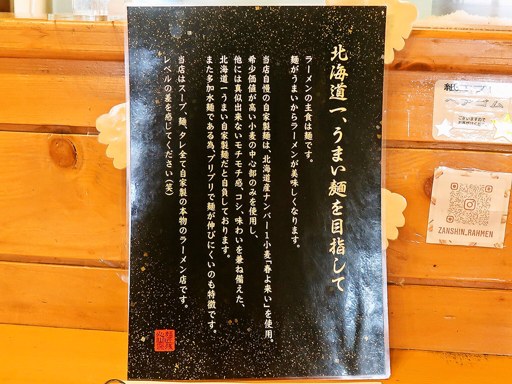 北海道一、うまい麺を目指して
ラーメンの主食は麺です。
麺がうまいからラーメンが美味しくなります。
当店自慢の自家製麺は、北海道産ナンバー1小麦「春よ来い」を使用。
希少価値が高い小麦の中心部のみを使用し、
他には真似出来ないモチモチ感、コシ、味わいを兼ね備えた、
北海道一うまい自家製麺だと自負しております。
また多加水麺である為、プリプリで麺が伸びにくいのも特徴です。
当店はスープ、麺、タレ全て自家製の本物のラーメン店です。
レベルの差を感じてください(笑)
ZANSHIN.RAHMEN